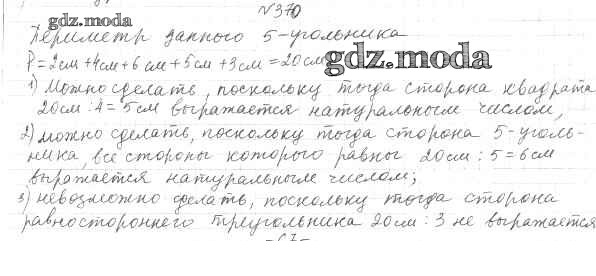 №370
gdz.moda
Периметр данного 5-угольника
P=2см+4см+6см+5см+3см=20см
gdz.moda
1) Можно сделать, поскольку тогда сторона квадрата
20см:4=5см выражается натуральным числом,
2) можно сделать, поскольку тогда сторона 5-уголь-
ника, все стороны которого равны 20см:5=6см
выражается натуральным числом;
3) невозможно сделать, поскольку тогда сторона
равностороннего треугольника 20см:3 не выражается